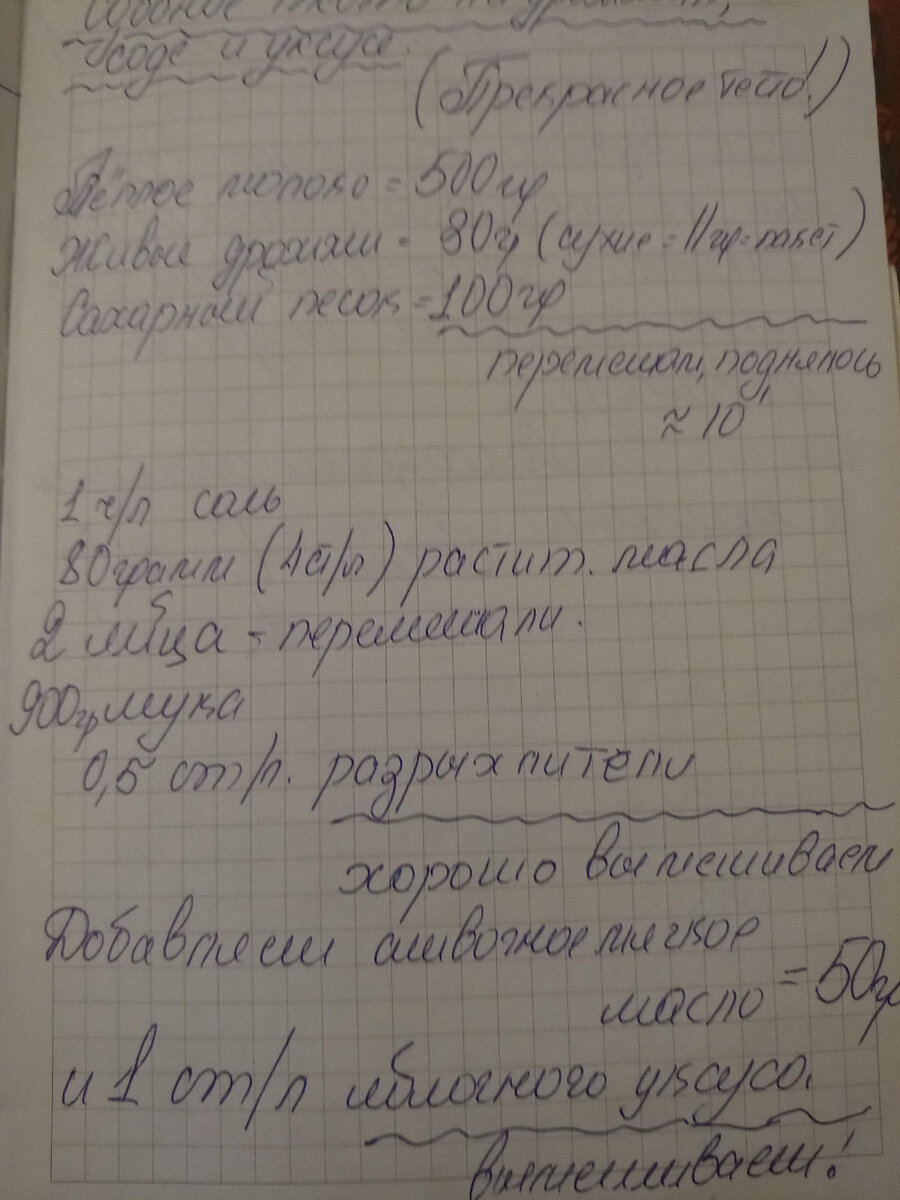 Сдобное тесто на дрожжах,
соде и уксусе.
(Прекрасное тесто!)
Тёплое молоко = 500гр
Живые дрожжи - 80г (сухие = 11гр = пакет)
Сахарный песок = 100гр
перемешали, поднялось
≈ 10'
1 ч/л соль
80грамм (4ст/л) растит. масла
2 яйца - перемешали.
900гр мука
0,5 ст/л. разрыхлители
хорошо вымешиваем
Добавляем сливочное мягкое
масло = 50гр
и 1 ст/л яблочного уксуса.
вымешиваем!